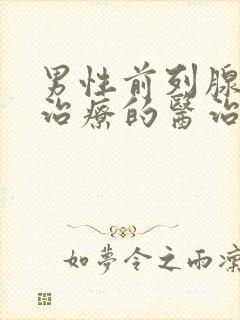 男性前列腺
治療的醫治
如夢令之雨凜